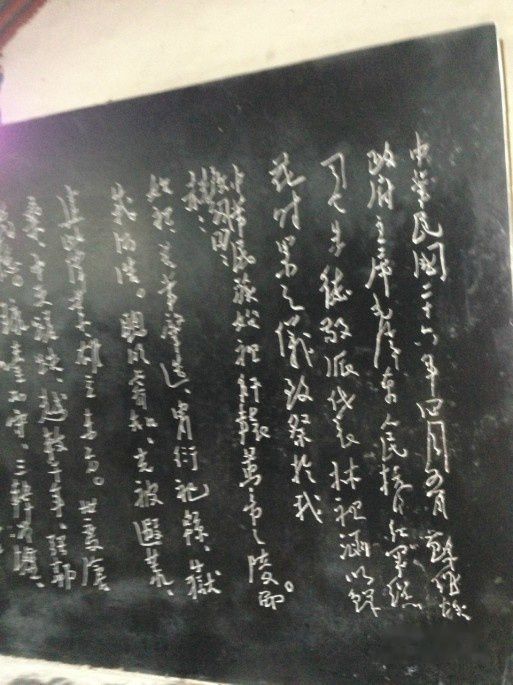 中華民國二十六年四月五日 蘇維埃
政府主席毛澤東人民抗日紅軍總
司令朱德敬派代表林祖涵以鮮
花時果之儀致祭於我
中華民族始祖軒轅黃帝之陵而
致詞曰
赫
始祖、吾華肇造、胄衍祀綿、嶽
峨河浩。聰明睿知、光被遐荒、
建此偉業雄立東方。世變滄
桑、中更蹉跌、越數千年、強鄰
蔑德。琉臺不守、三韓為墟、